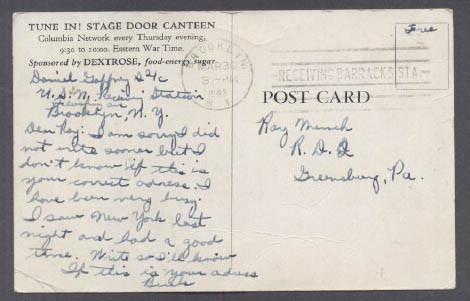 TUNE IN! STAGE DOOR CANTEEN
Columbia Network every Thursday evening,
9:30 to 10:00. Eastern War Time.
Sponsored by DEXTROSE, food-energy sugar
Daniel Gaffney S2/c
U.S.N. Receiving Station
Brooklyn, N.Y.
Dear Ray: I am sorry I did
not write sooner but I
don't know if this is
your correct adress. I
have been very busy.
I saw New York last
night and had a good
time. Write so I'll know
If this is your adress
BROOKLYN
MAR 30
3 - PM
1943
N.Y.
RECEIVING BARRACKS STA.
Free
POST CARD
Ray
R. D. 2
Greensburg, Pa.